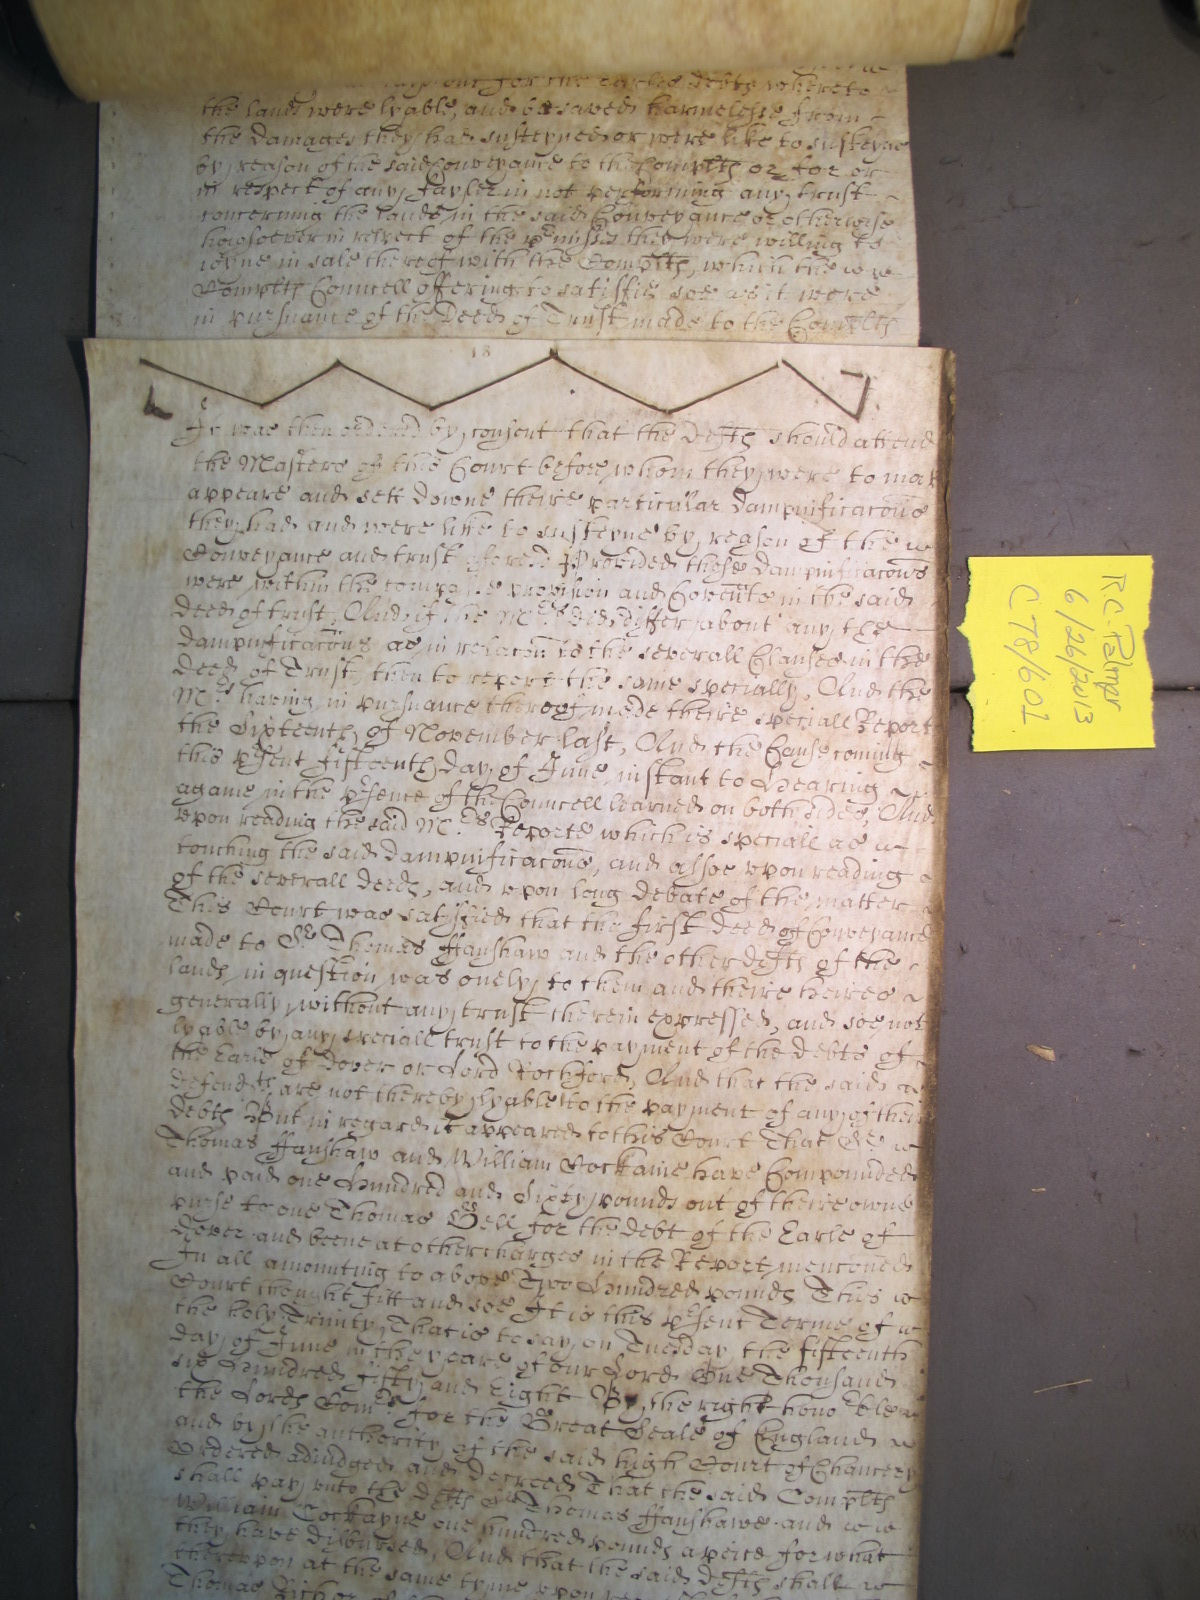 out for the Earles debts whereto
the lands were lyable, and be saved harmelesse from
the damages they had susteyned or were like to susteyne
by reason of the said Conveyance to the Complts or for or
in respect of any in not performing any trust
concerning the lands in the said Conveyance or otherwise
howsoever in respect of the premisses they were willing to
ioyne in sale thereof with the Complts, which the
Complts Councell offering to satisfie soe as it were
in pursuance of the Deed of Trust made to the Complts
18
It was then ordered by consent that the Defts should attend
the Masters of this Court before whom they were to
appeare and sett downe theire particular dampnificacons
they had and were like to susteyne by reason of the
Conveyance and trust Provided those dampnificacons
were within the provision and in the said
deed of trust, And if the Mrs did differ about any the
dampnificacons as in relacon to the severall Clauses in the
deed of Trust, then to report the same specially, And the
Mrs having in pursuance thereof made theire speciall Report
the Sixteenth of November last, And the Cause coming
this psent fifteenth day of June instant to Hearing
againe in the psence of the Councell learned on both sides, And
upon reading the said Mrs Reporte which is speciall as
touching the said dampnificacons, and alsoe upon reading
of the severall deeds, and upon long debate of the matter
This Court was satisfied that the first deed of Conveyance
made to Sr Thomas ffanshaw and the other defts of the
lands in question was onely to them and theire heires
generally without any trust therein expressed, and soe not
lyable by any speciall trust to the payment of the debts of
the Earle of Dover or Lord Rochford, And that the said
defendts are not thereby lyable to the payment of any of their
debts But in regard it appeared to this Court That Sr
Thomas ffanshaw and William Cockaine have Compounded
and paid one Hundred and Sixty pounds out of theire owne
purse to one Thomas Gell for the debt of the Earle of
Dover and beene at other charges in the Report mentoned
In all amounting to above Two Hundred pounds This
Court thought fitt and soe It is this psent Terme of
the holy Trinity, That is to say, on Tuesday the fifteenth
day of June in the yeare of our Lord One Thousand
six Hundred fifty and Eight By the right honoble
the Lords Comrs for the Great Seale of England
and by the authority of the said high Court of Chancery
Ordered adiudged and Decreed That the said Complts
shall pay unto the defts Sr Thomas ffanshawe and
William Cockayne one hundred pounds apeice for what
they have disbursed, And that the said defts shall
thereupon at the same tyme upon
Thomas
RC Palmer
6/26/2013
C78/601